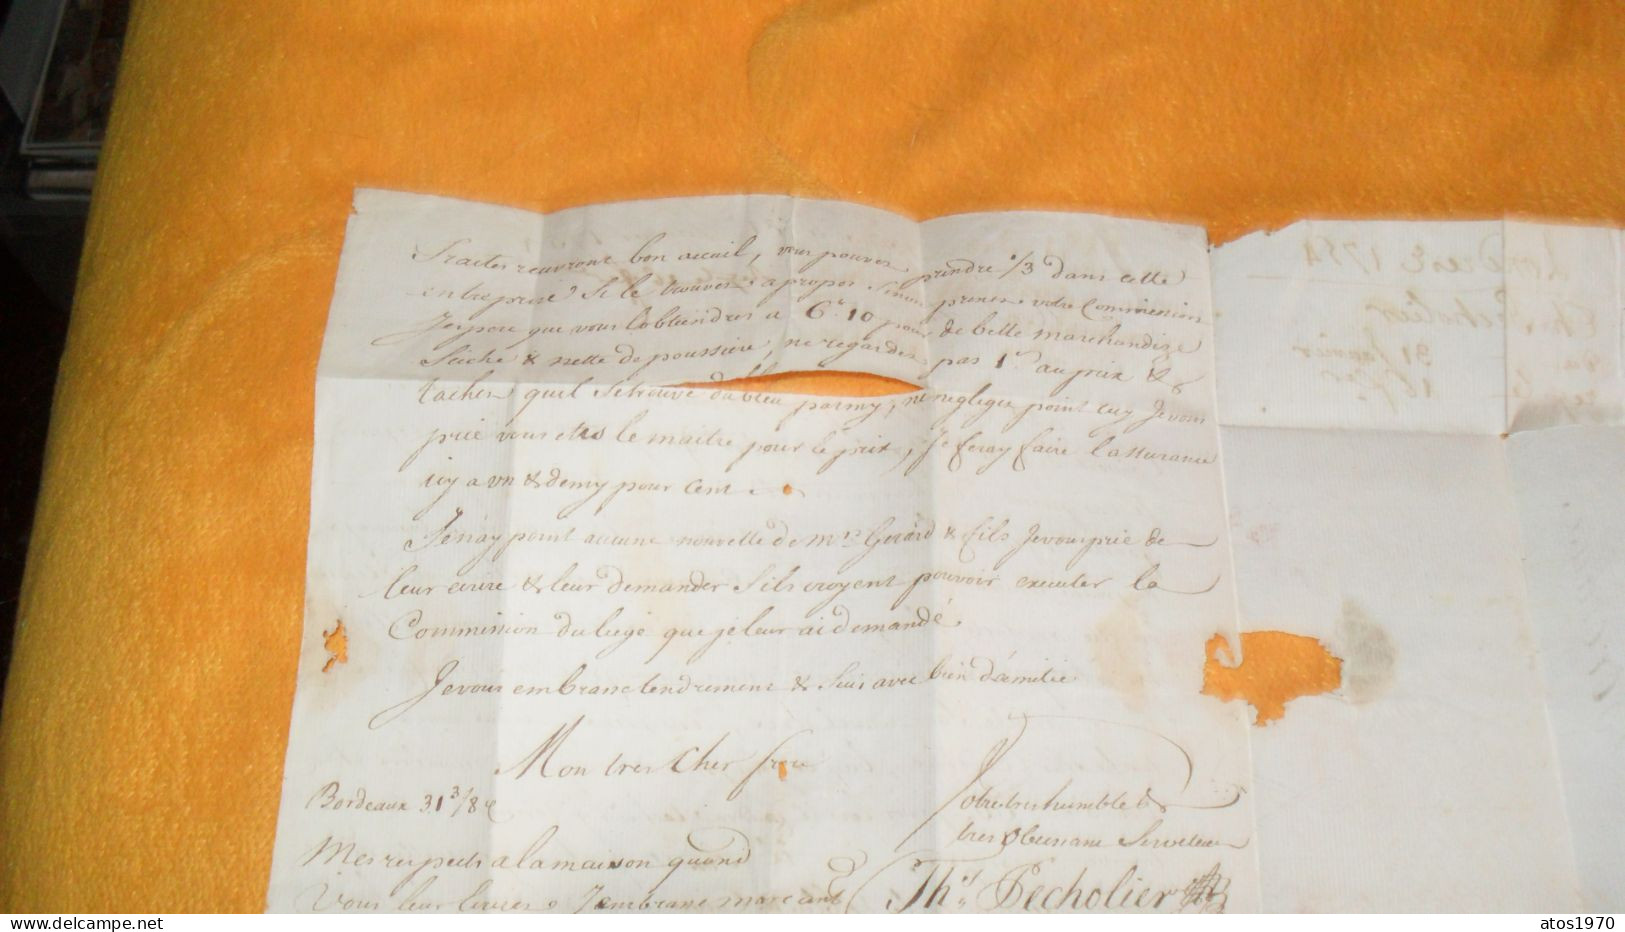 traites recevront bon accueil, vous pouvez prendre 1/3 dans cette
entreprise Si le trouvez apropos Sinon prenez votre Commission
Jespere que vous lobtiendrez a 6.# 10 pour de belle marchandize
Seiche & nette de poussiere, ne regardez pas 1 au prix &
tachez quil Se trouve du bleu parmy, ne negligez point cecy Je vous
prie vous etes le maitre pour le prix, Je feray faire l'assurance
icy a un & demy pour cent.
Je nay point aucune nouvelle de Mrs Gerard & fils Je vous prie de
leur ecrire & leur demander S'ils croyent pouvoir executer la
Commission du liege que je leur ai demandé.
Je vous embrasse tendrement & Suis avec bien d'amitié
Mon tres Cher frere
Bordeaux 31 3/84
Votre tres humble &
tres Obeissant Serviteur
Mes respects a la maison quand
Vous leur Ecrirez. J'embrasse
Ths Pecholier
1784
Ths Pecholier
Du 31 Janvier
atos1970